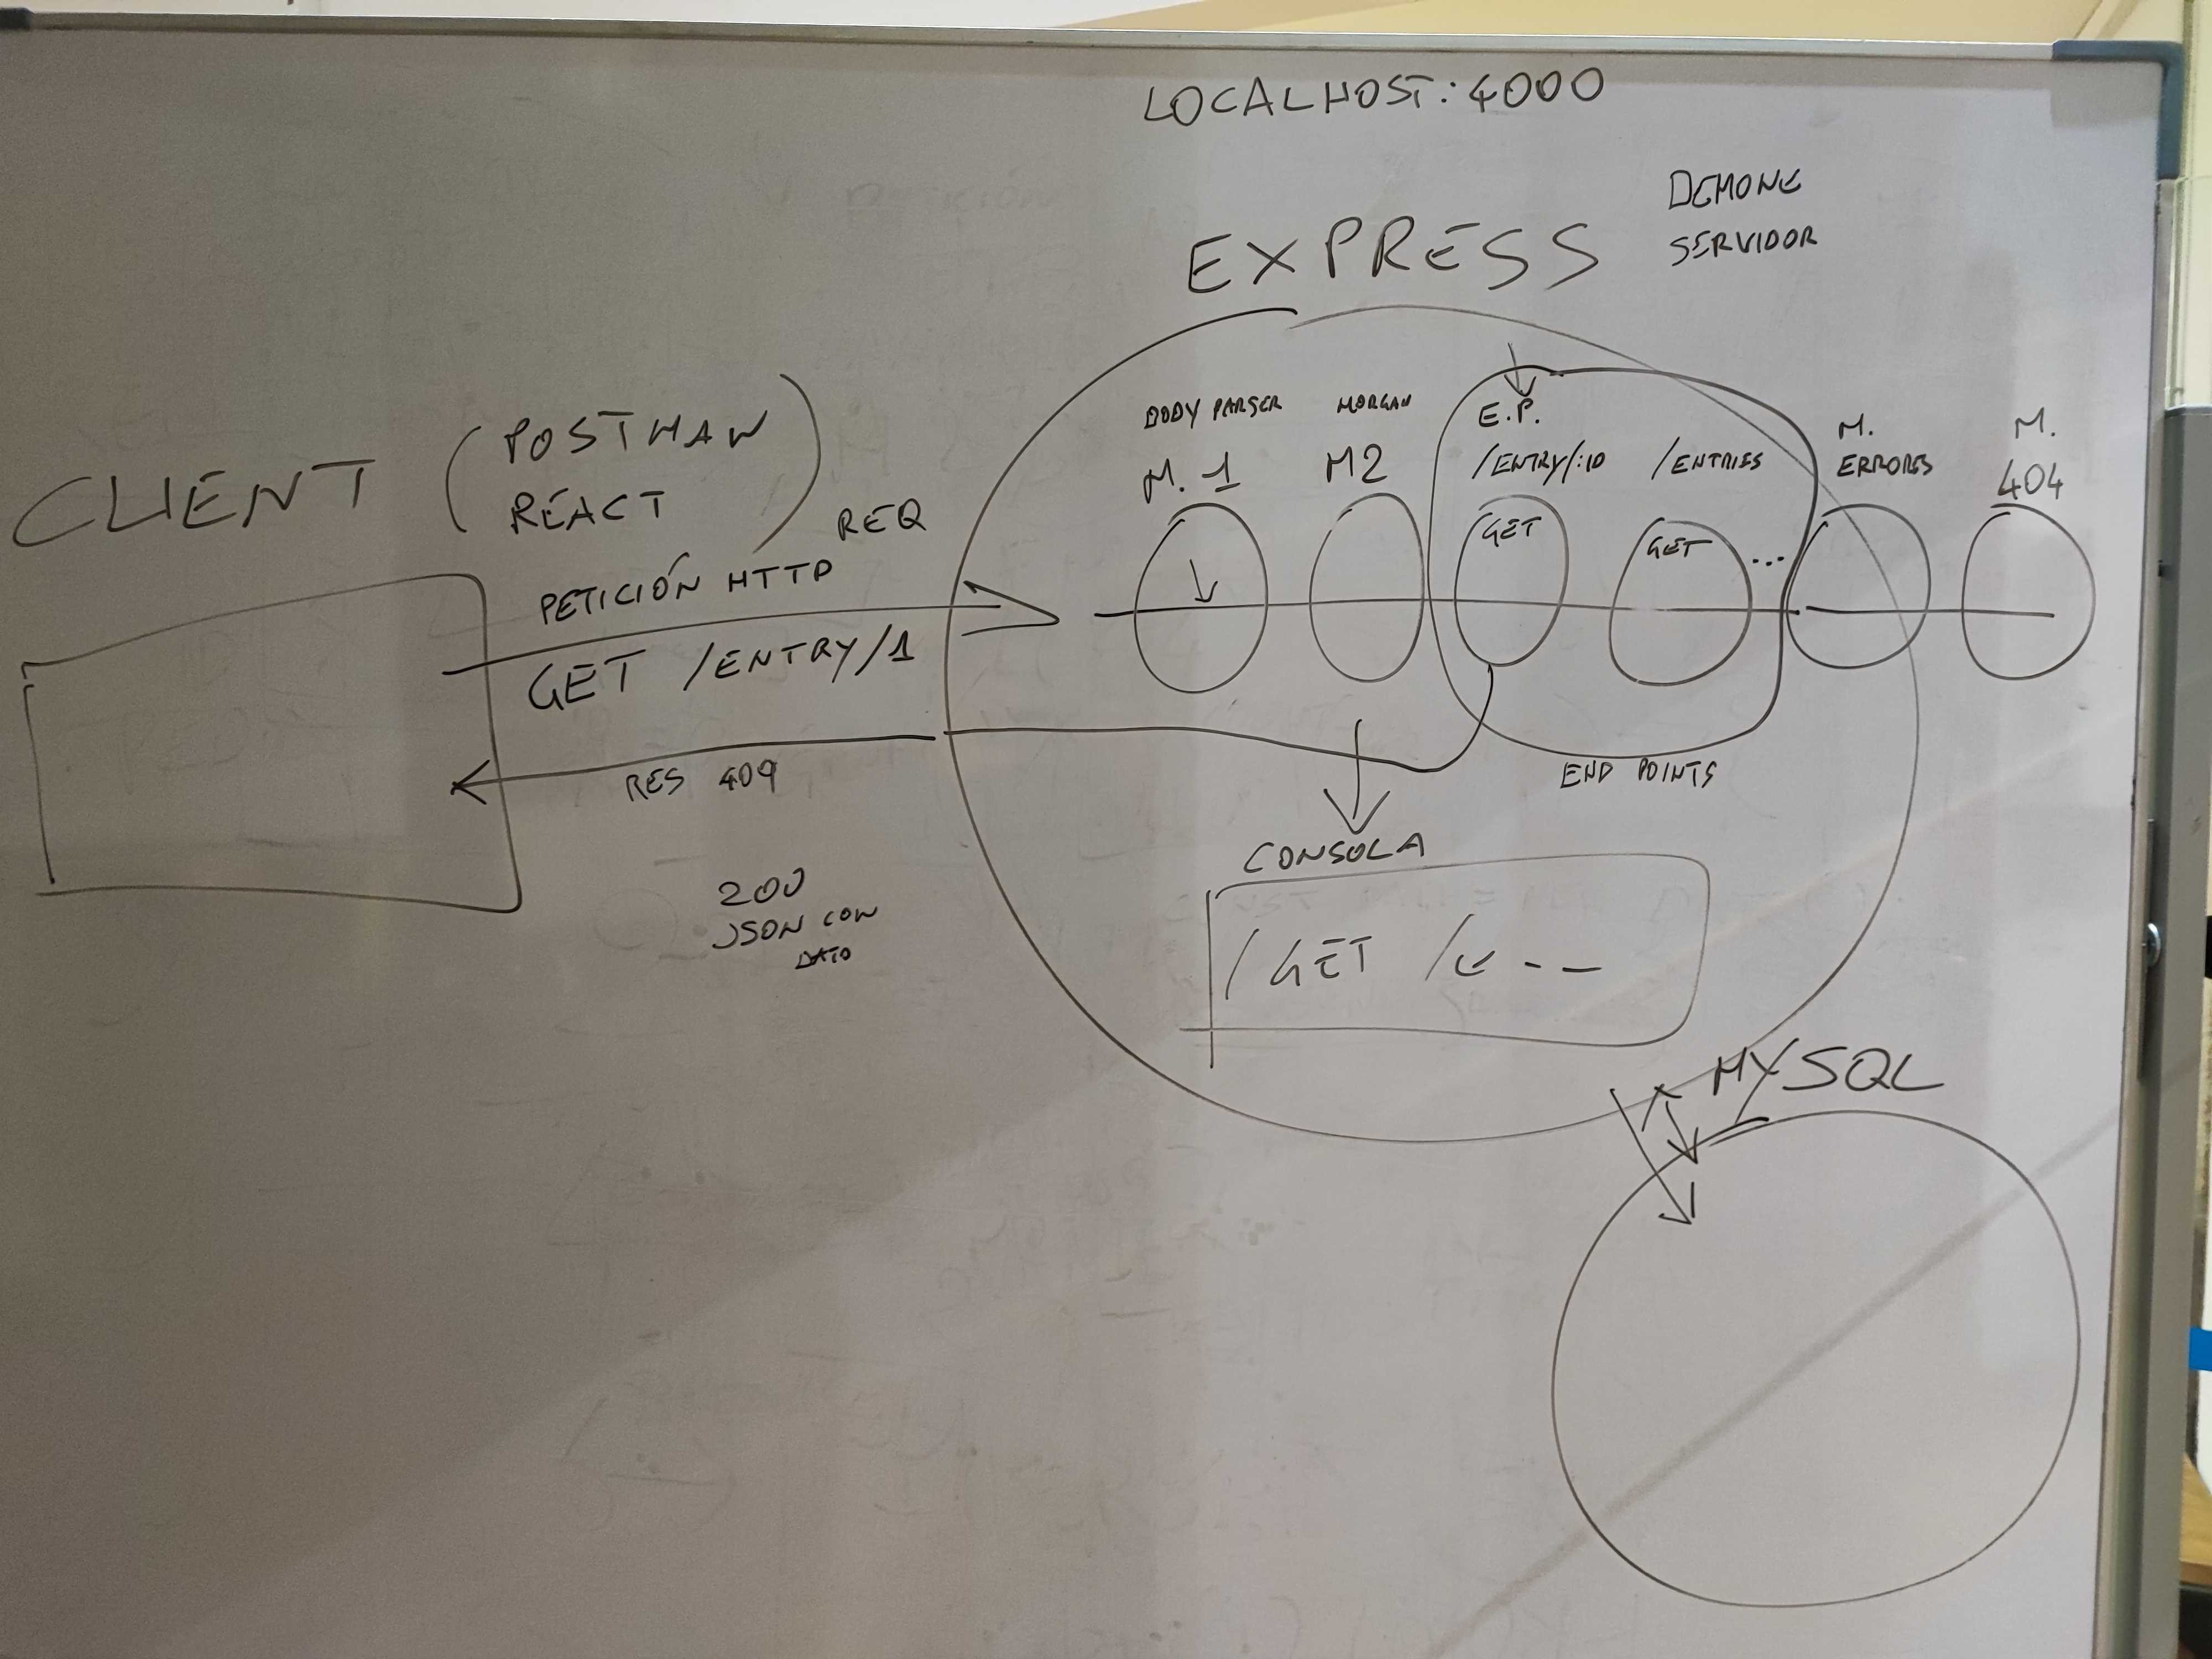 LOCALHOST:4000
DEMONE
SERVIDOR
EXPRESS
CLIENT
(POSTMAN
REACT)
REQ
PETICIÓN HTTP
GET /ENTRY/1
RES 409
200
JSON CON
DATO
BODY PARSER
M. 1
MORGAN
M2
E.P.
/ENTRY/:ID
GET
/ENTRIES
GET
...
M.
ERRORES
M.
404
END POINTS
CONSOLA
/GET /e - -
MYSQL